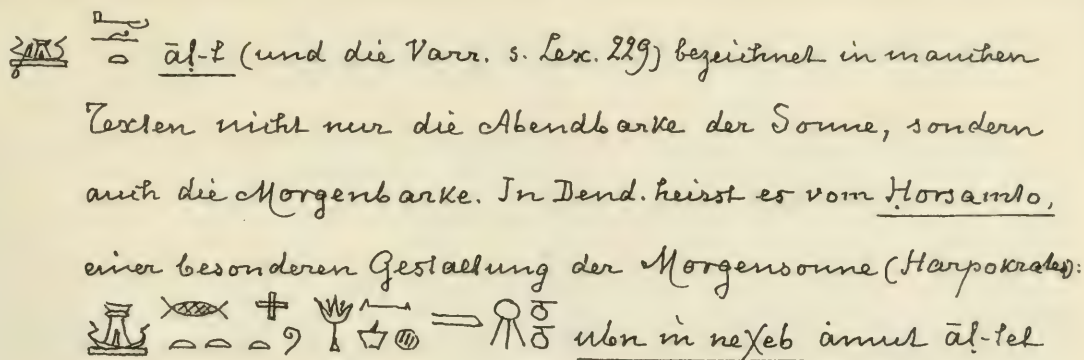 āṭ-t (und die Varr. s. Lex. 229) bezeichnet in manchen
Texten nicht nur die Abendbarke der Sonne, sondern
auch die Morgenbarke. In Dend. heisst es vom Ḥorsamto,
einer besonderen Gestaltung der Morgensonne (Harpokrates):
uben in neχeb ȧmut āṭ-tet